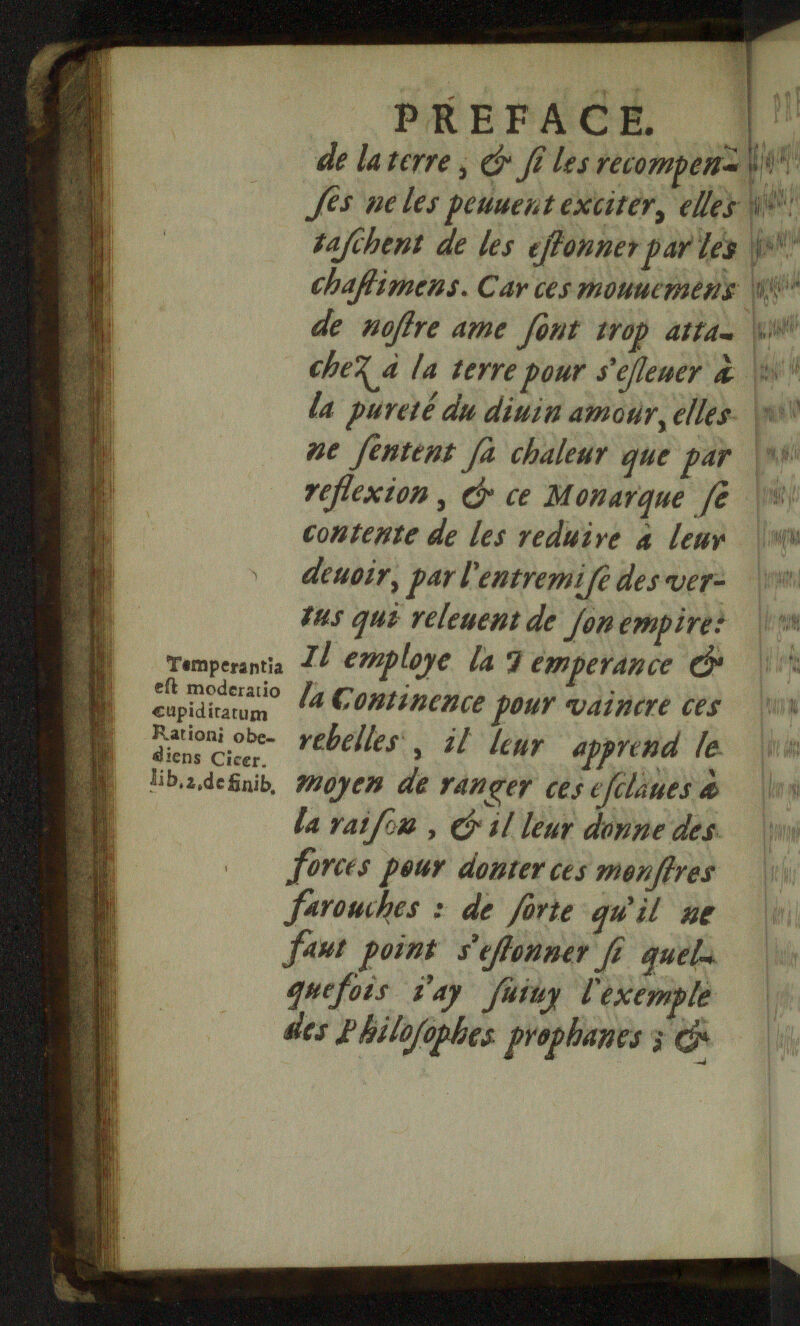 PREFACE.
de la terre, & ſi les recompen-
ſes ne les peuuent exciter, elles
taſchent de les eſtonner par les
chaſtimens. Car ces mouuemens
de noſtre ame ſont trop atta-
chez à la terre pour s'eſleuer à
la pureté du diuin amour, elles
ne ſentent ſa chaleur que par
reflexion, & ce Monarque ſe
contente de les reduire a leur
deuoir, par l'entremiſe des ver-
tus qui releuent de ſon empire:
Il employe la Temperance &
la Continence pour vaincre ces
rebelles, il leur apprend le
moyen de ranger ces eſclaues à
la raiſon, & il leur donne des
forces pour donter ces monſtres
farouches : de ſorte qu'il ne
faut point s'eſtonner ſi quel-
quefois i'ay ſuiuy l'exemple
des Philoſophes prophanes ; &
Temperantia
eſt moderatio
cupiditatum
Rationi obe-
diens Cicer.
lib.2.definib.